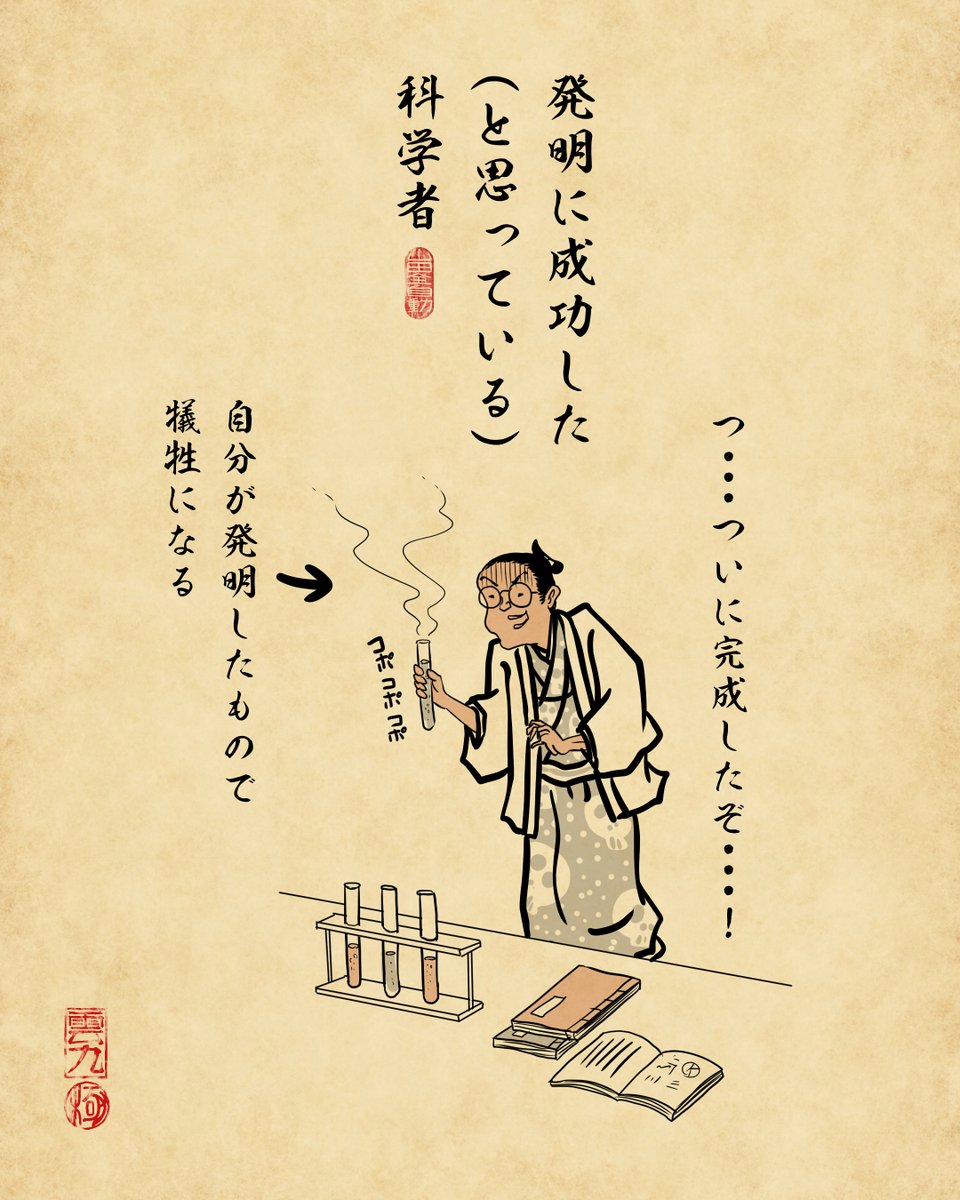 発明に成功した
(と思っている)
科学者
つ・・・ついに完成したぞ・・・!
自分が発明したもので
犠牲になる
コポコポコポ